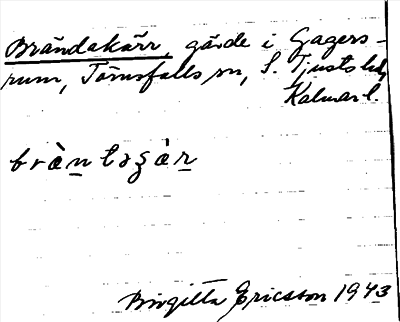 Brändakärr, gärde i Gagers-
rum, Törnsfalls sn, S. Tjusts hd,
Kalmar l.
bràntagár
Birgitta Ericsson 1943